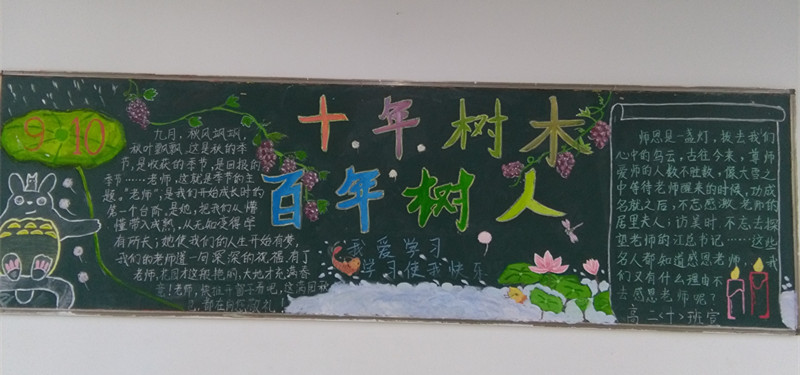 9 10
九月，秋风飒飒，
秋叶飘飘，这是秋的季
节，是收获的季节，是回报的
季节……老师，这就是季节的主
题。"老师"，是我们开始成长时的
第一个台阶，是她，把我们从懵
懂带入成熟，从无知变得学
有所长；她使我们的人生开始有梦，
我们的老师道一句深深的祝福，有了
老师，花园才这般艳丽，大地才充满春
意！老师，快推开窗子看吧，这满园
都在向您敬礼
十年树木
百年树人
我爱学习
学习使我快乐
师恩是一盏灯，拨去我们
心中的乌云，古往今来，尊师
爱师的人数不胜数，像大雪之
中等待老师醒来的时候，功成
名就之后，不忘感激老师的
居里夫人；访美时不忘去探
望老师的江总书记……这些
名人都知道感恩老师，我
们又有什么理由不
去感恩老师呢？
高二（十）班宣